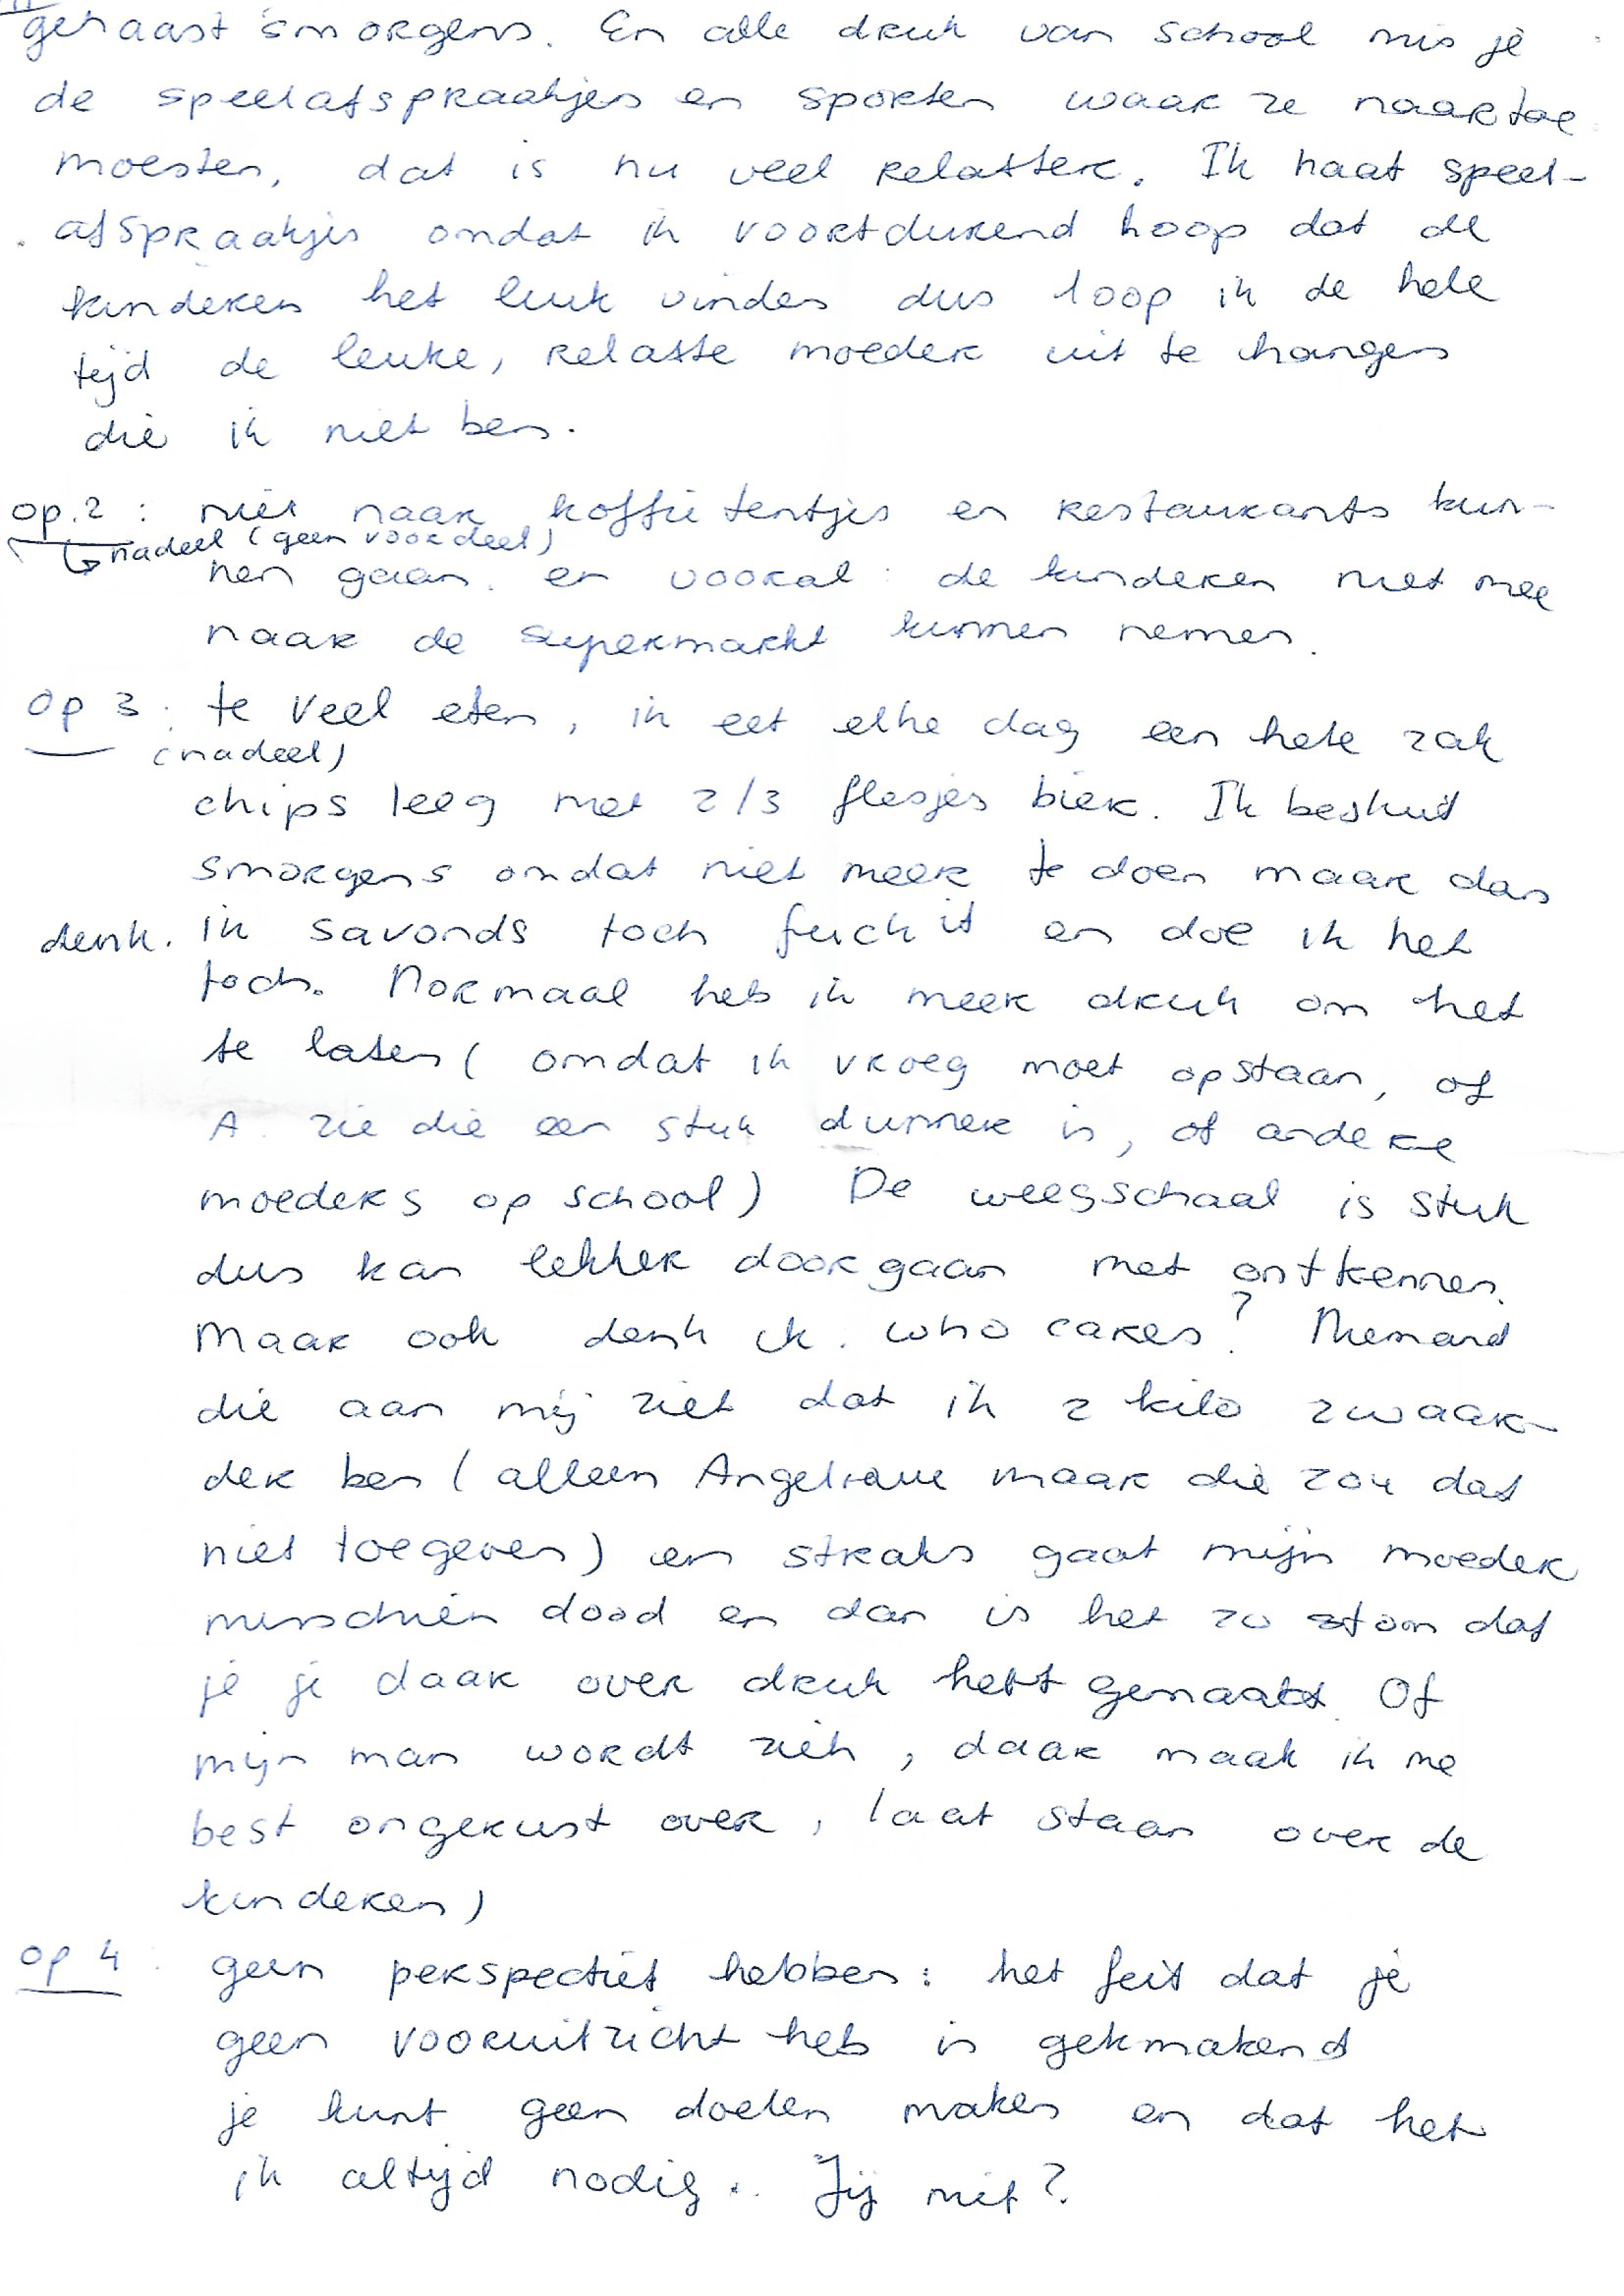 gehaast smorgens. En alle druk van school mis je
de speelafspraakjes en sporten waar ze naartoe
moesten, dat is nu veel relatter. Ik haat speel-
afspraakjes omdat ik voortdurend hoop dat de
kinderen het leuk vinden dus loop ik de hele
tijd de leuke, relatte moeder uit te hangen
die ik niet ben.
op. 2 : niet naar koffie tentjes en restaurants kun-
↳ nadeel (geen voordeel)
nen gaan. en vooral : de kinderen niet mee
naar de supermarkt kunnen nemen.
op 3 : te veel eten, ik eet elke dag een hele zak
(nadeel)
chips leeg met 2/3 flesjes bier. Ik besluit
smorgens omdat niet meer te doen maar dan
denk. ik savonds toch fuck it en doe ik het
toch. Normaal heb ik meer druk om het
te laten ( omdat ik vroeg moet opstaan, of
A. zie die een stuk dunner is, of andere
moeders op school) De weegschaal is stuk
dus kan lekker doorgaan met ontkennen.
Maar ook denk ik : who cares? Niemand
die aan mij ziet dat ik 2 kilo zwaar-
der ben ( alleen maar die zou dat
niet toegeven) en straks gaat mijn moeder
misschien dood en dan is het zo stom dat
je je daar over druk hebt gemaakt. Of
mijn man wordt ziek, daar maak ik me
best ongerust over, laat staan over de
kinderen)
op 4 : geen perspectief hebben : het feit dat je
geen vooruitzicht heb is gekmakend
je kunt geen doelen maken en dat heb
ik altijd nodig.. Jij niet?